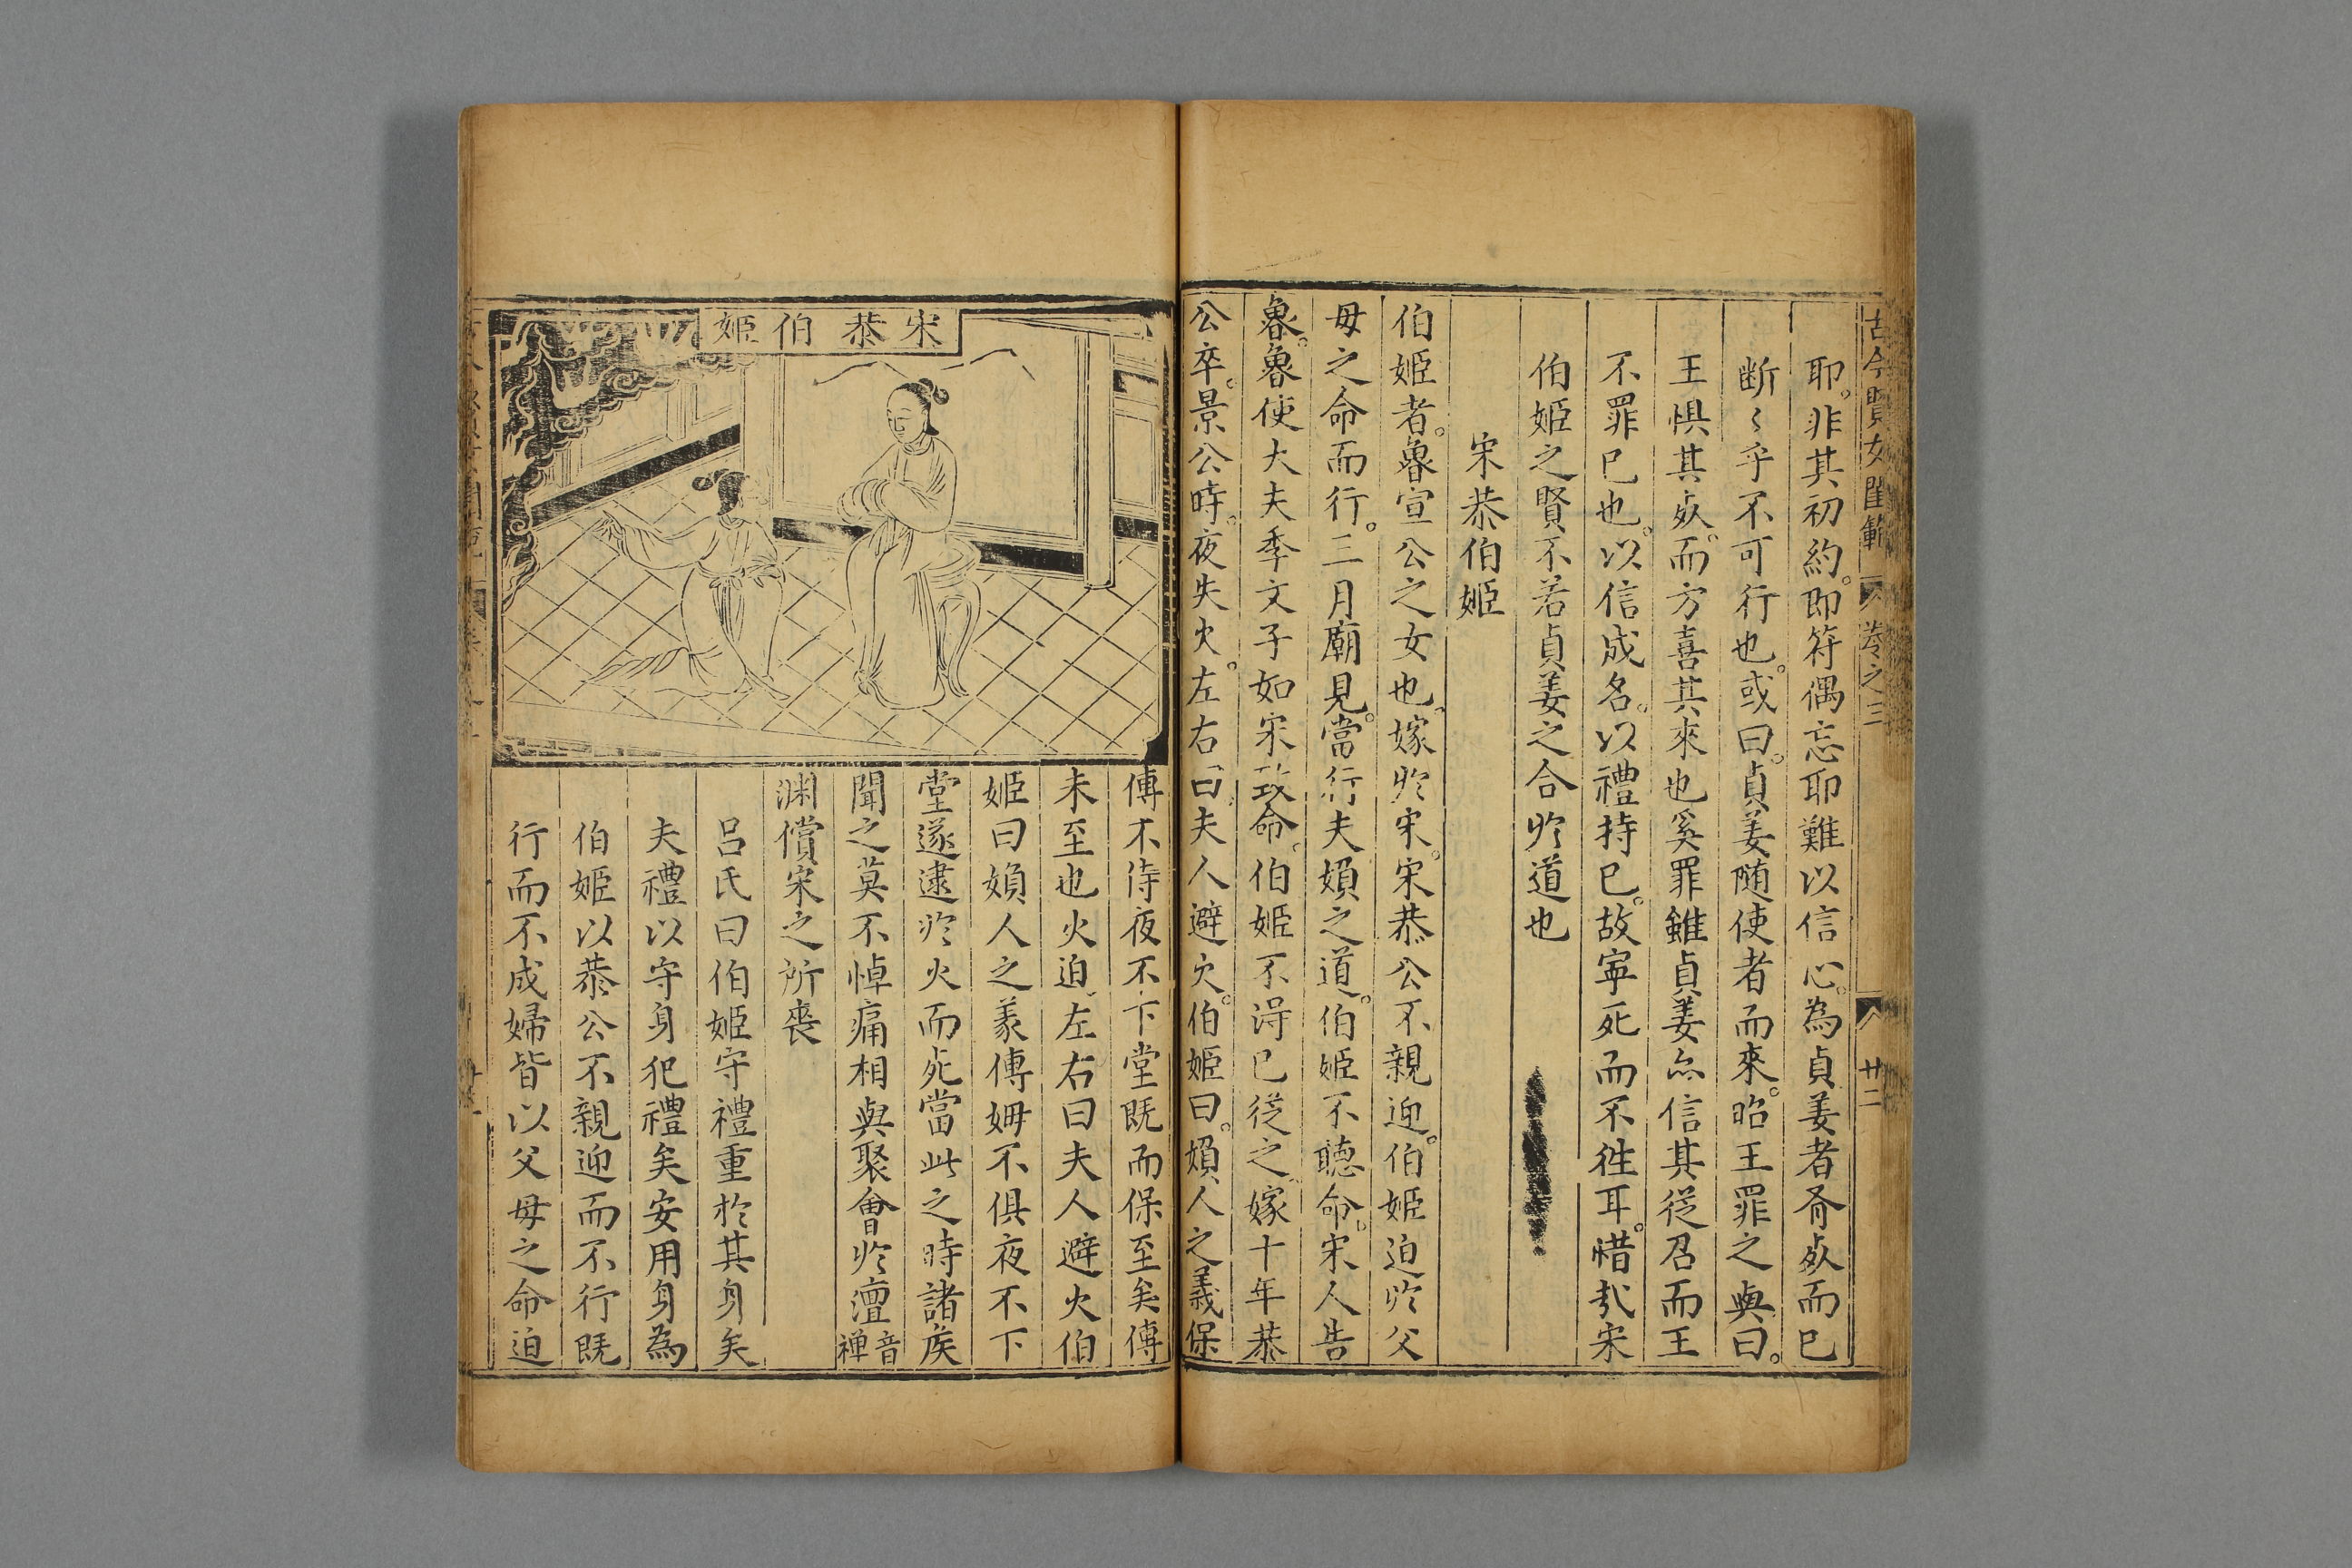 古今賢女閨範 卷之三 廿二
耶非其初約即符偶忘耶難以信心為貞姜者有死而已
断〻乎不可行也或曰貞姜随使者而來昭王罪之與曰
王惧其死而方喜其來也奚罪雖貞姜亦信其從召而王
不罪已也以信成名以禮持已故寧死而不徃耳惜哉宋
伯姬之賢不若貞姜之合於道也
宋恭伯姬
伯姬者魯宣公之女也嫁於宋宋恭公不親迎伯姬迫於父
母之命而行三月廟見當行夫婦之道伯姬不聽命宋人告
魯魯使大夫季文子如宋致命伯姬不得已從之嫁十年恭
公卒景公時夜失火左右曰夫人避火伯姬曰婦人之義保
宋恭伯姬
傅不俻夜不下堂既而保至矣傅
未至也火迫左右曰夫人避火伯
姬曰婦人之義傅姆不俱夜不下
堂遂逮於火而死當此之時諸侯
聞之莫不悼痛相與聚會於澶音禅
渊償宋之所喪
呂氏曰伯姬守禮重於其身矣
夫禮以守身犯禮矣安用身為
伯姬以恭公不親迎而不行既
行而不成婦皆以父母之命迫